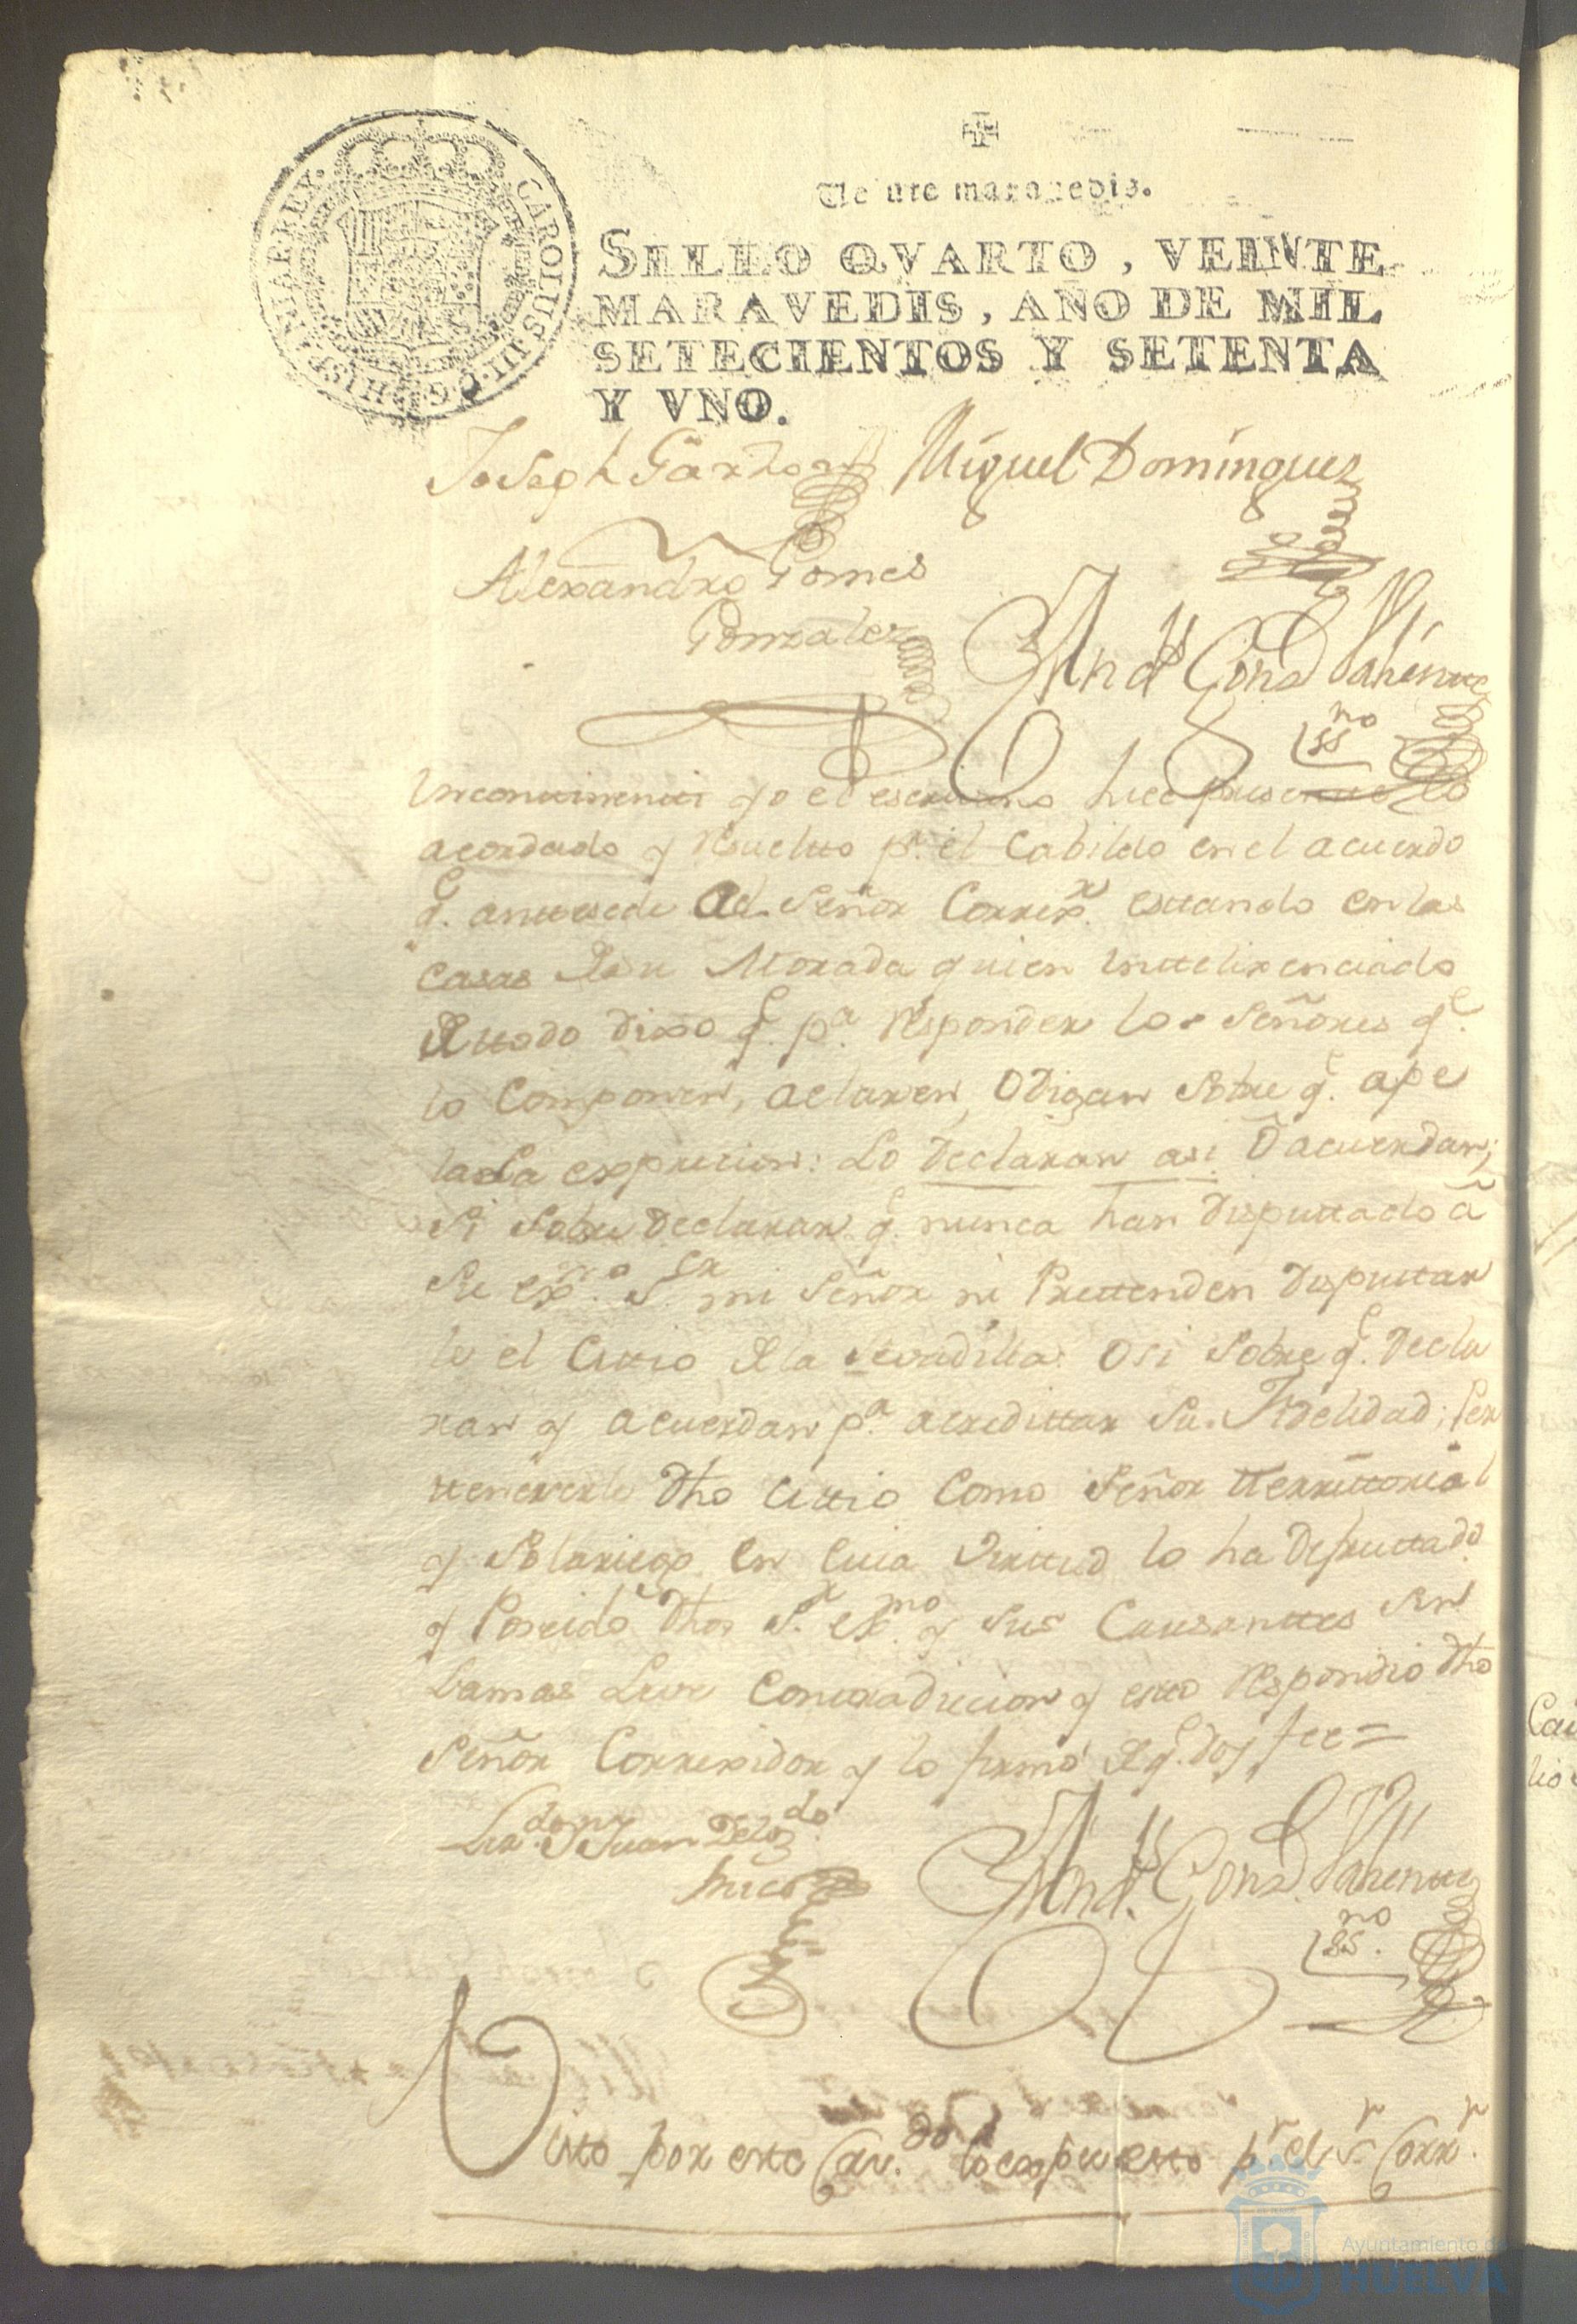 CAROLUS III. D. G. HISPANIAR REX.
Veinte maravedis.
SELLO QVARTO, VEINTE
MARAVEDIS, AÑO DE MIL
SETECIENTOS Y SETENTA
Y VNO.
Joseph Miguel Dominguez
Alexandro Gomes
Gonzalez
And.s Gonz
ss.no
Yncontinenti yo el escriuano hice presente lo
acordado y resuelto p.r el Cabildo en el acuerdo
q.e antesede al Señor Correx.r estando en las
casas de su Morada quien Yntelixenciado
de ttodo dixo q.e p.a responder los Señores q.e
lo Componen, aclaren, O digan sobre q.e ape
la expresion: Lo Declaran asi O acuerdan;
Si sobre Declarar q.e nunca han Disputtado a
Su ex.mo S.or mi Señor ni Prettenden Disputtar
le el Cittio de la O si sobre q.e Decla
ran y acuerdan p.a acredittar su Fidelidad; Per
ttenecerle Dho Cittio Como Señor tterrittorial
y Solariego en Cuia Virttud lo ha Disfruttado
y Poseido Dho S.r ex.mo y sus Causanttes Sin
Jamas Leve Conttradicion y estto respondio Dho
Señor Correxidor y lo firmó de q.e doy fee=
Liz.do d.n Juan Delg.do
And.s Gonz
ss.no
Visto por este Cav.do lo expuesto p.r el S.r Corr.r
Ayuntamiento de
HUELVA